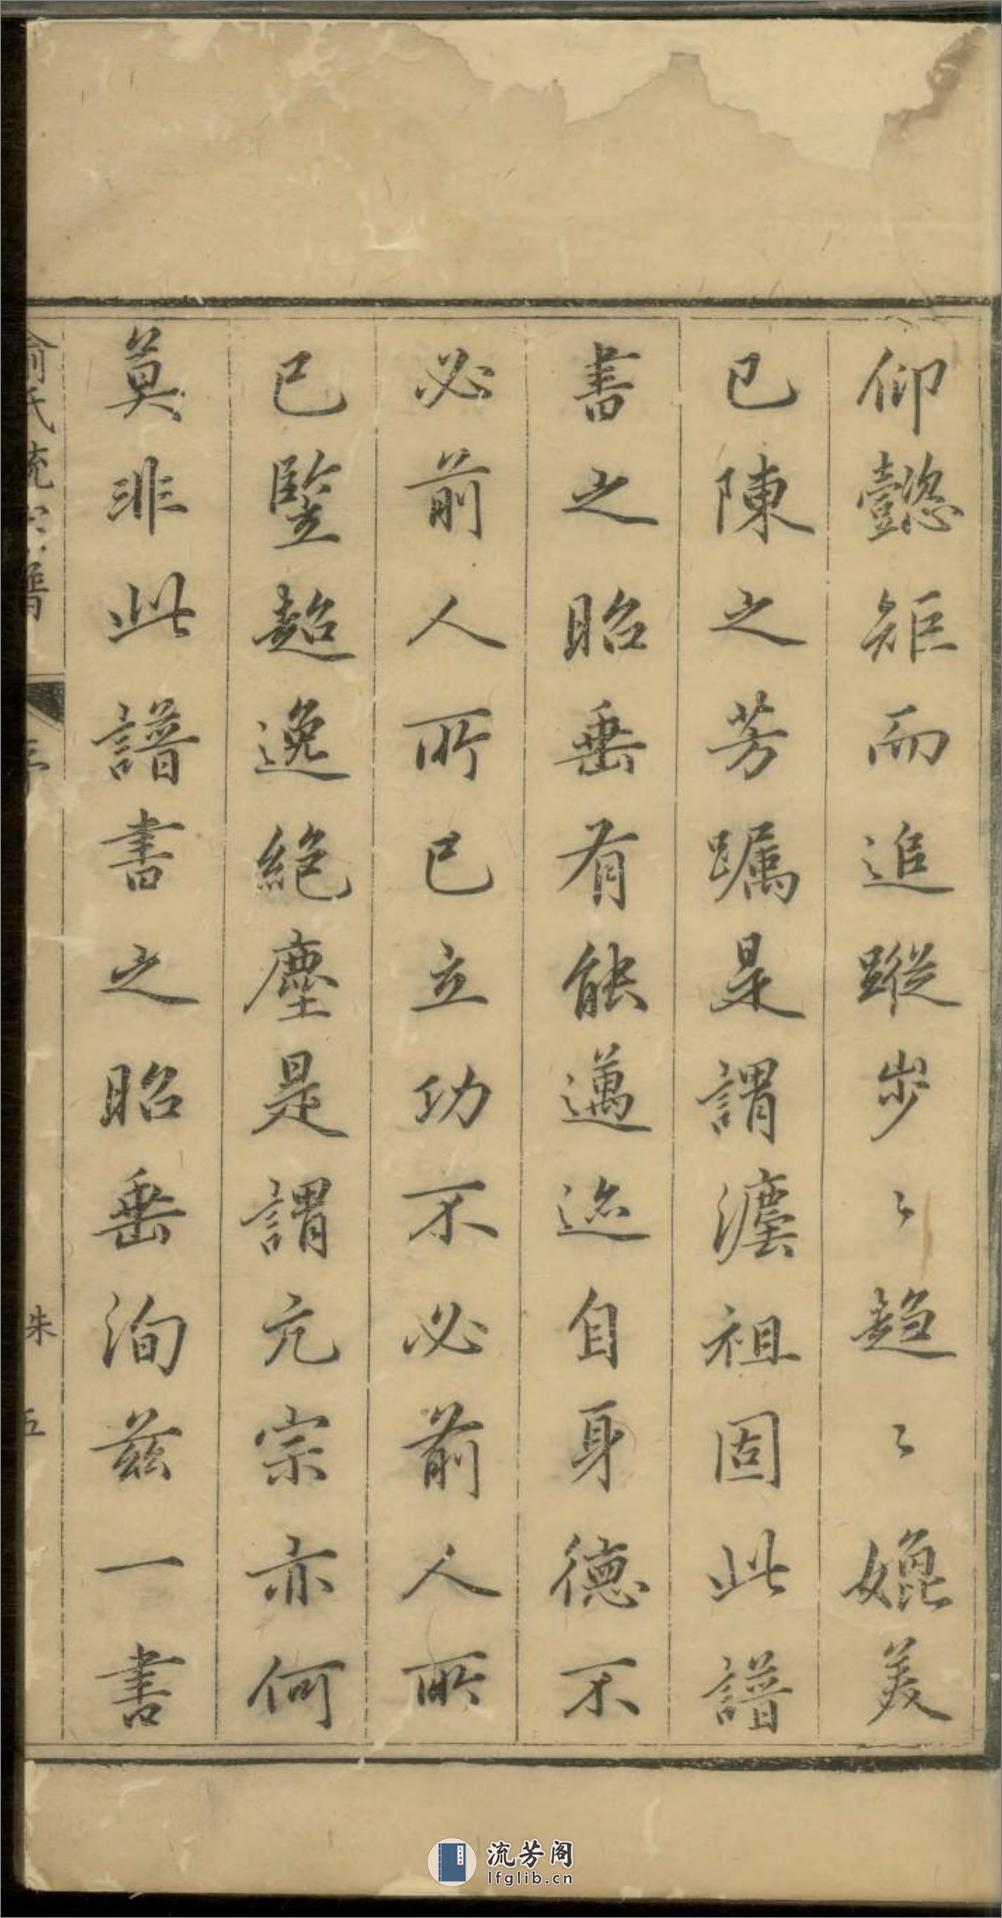 仰懿矩而追蹤步〻趨〻媲美
已陳之芳躅是謂潷祖固此譜
書之昭垂有能邁迹自身德不
必前人所已立功不必前人所
已豎超逸絕塵是謂亢宗亦何
莫非此譜書之昭垂洵茲一書
俞氏統宗譜
序
朱
五
流芳阁
lfglib.cn